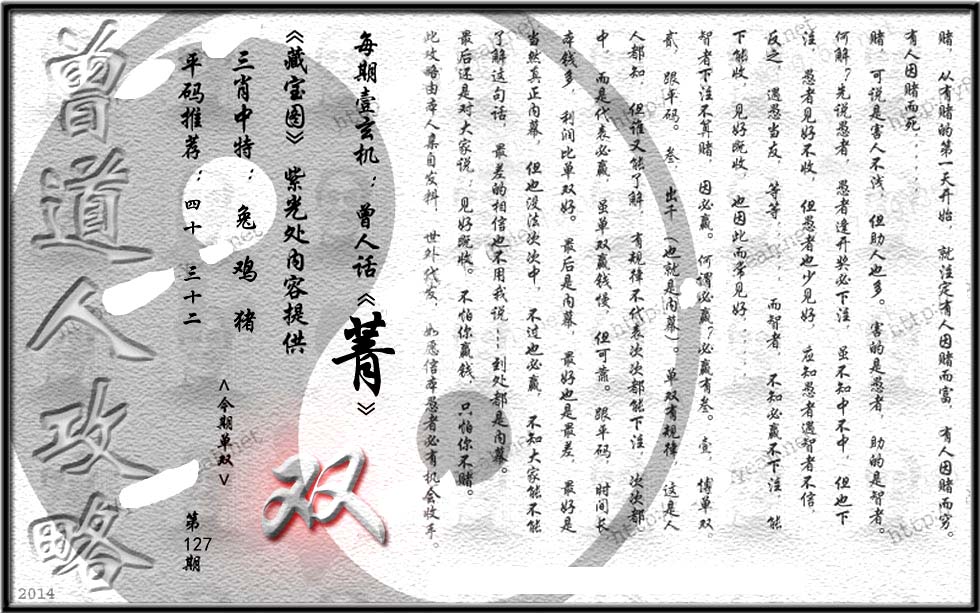 赌，从有赌的第一天开始，就注定有人因赌而富，有人因赌而穷。
有人因赌而死.....
赌，可说是害人不浅，但助人也多。害的是愚者，助的是智者。
何解？先说愚者，愚者逢开奖必下注，虽不知中不中，但也下
注，愚者见好不收，但愚者也少见好，应知愚者遇智者不信，
反之，遇愚当友，等等.....，而智者，不知必赢不下注，能
下能收，见好既收，也因此而常见好.....
智者下注不算赌，因必赢。何谓必赢？必赢有叁。壹，博单双。
贰，跟平码。叁，出千（也就是内幕）。单双有规律，这是人
人都知，但谁又能了解，有规律不代表次次都能下注，次次都
中，而是代表必赢，虽单双赢钱慢，但可靠。跟平码，时间长
本钱多，利润比单双好。最后是内幕，最好也是最差，最好是
当然真正内幕，但也没法次次中，不过也必赢，不知大家能不能
了解这句话，最差的相信也不用我说……到处都是内幕。
最后还是对大家说：见好既收。不怕你赢钱，只怕你不赌。
此攻略由本人集自发料，世外代发，如愿信本愚者必有机会收手。
每期壹玄机：曾人话《菁》
《藏宝图》紫光处内容提供
三肖中特：兔 鸡 猪
平码推荐：四十 三十二
<今期单双>
双
第127期
曾道人攻略
2014